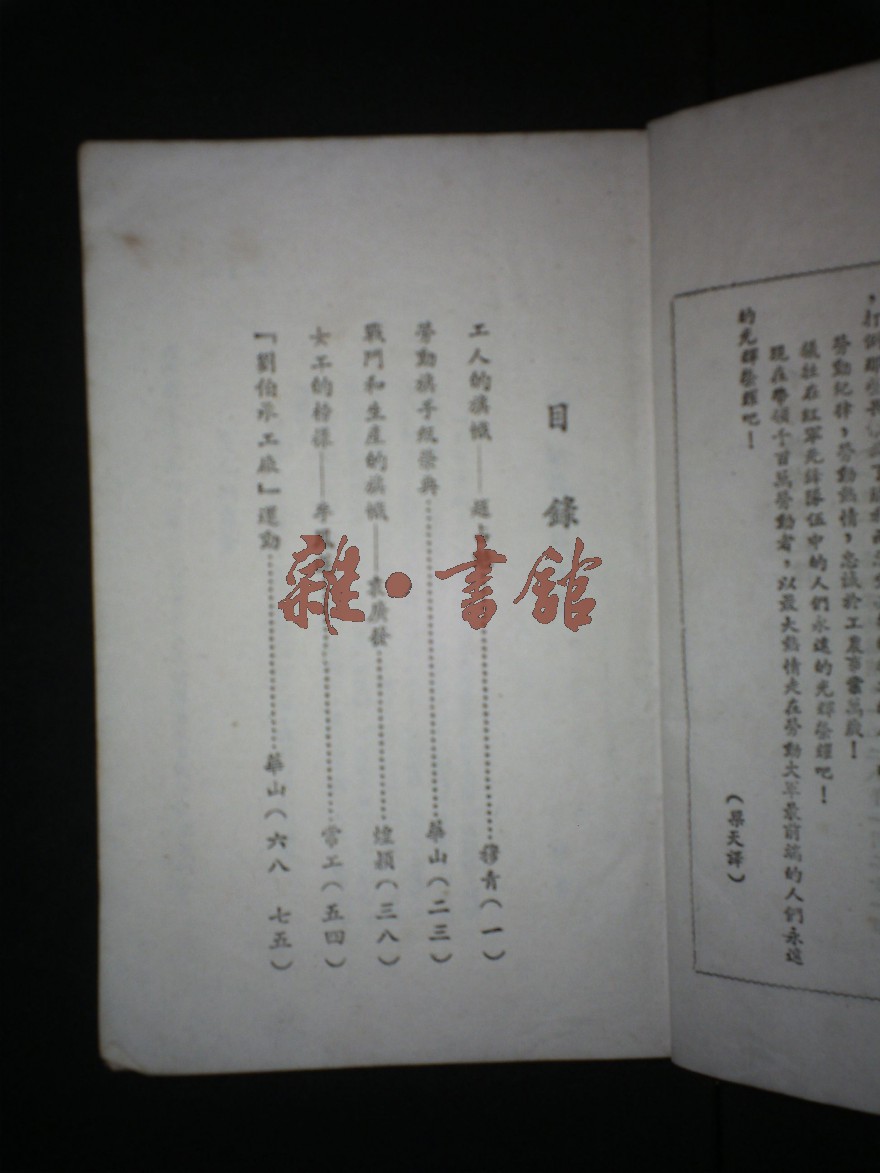 打倒
勞動紀律，勞動熱情，忠誠於工農事業萬歲！
犧牲在紅軍先鋒隊伍中的人們永遠的光輝榮耀吧！
現在帶領千百萬勞動者，以最大熱情走在勞動大軍最前端的人們永遠
的光輝榮耀吧！
（梁天譯）
目錄
工人的旗幟——趙⋯⋯穆青（一）
勞動旗手紙榮典⋯⋯華山（二三）
戰鬥和生產的旗幟——袁廣發⋯⋯煌穎（三八）
女工的榜樣——⋯⋯常工（五四）
『劉伯承工廠』運動⋯⋯華山（六八 七五）
雜·書館